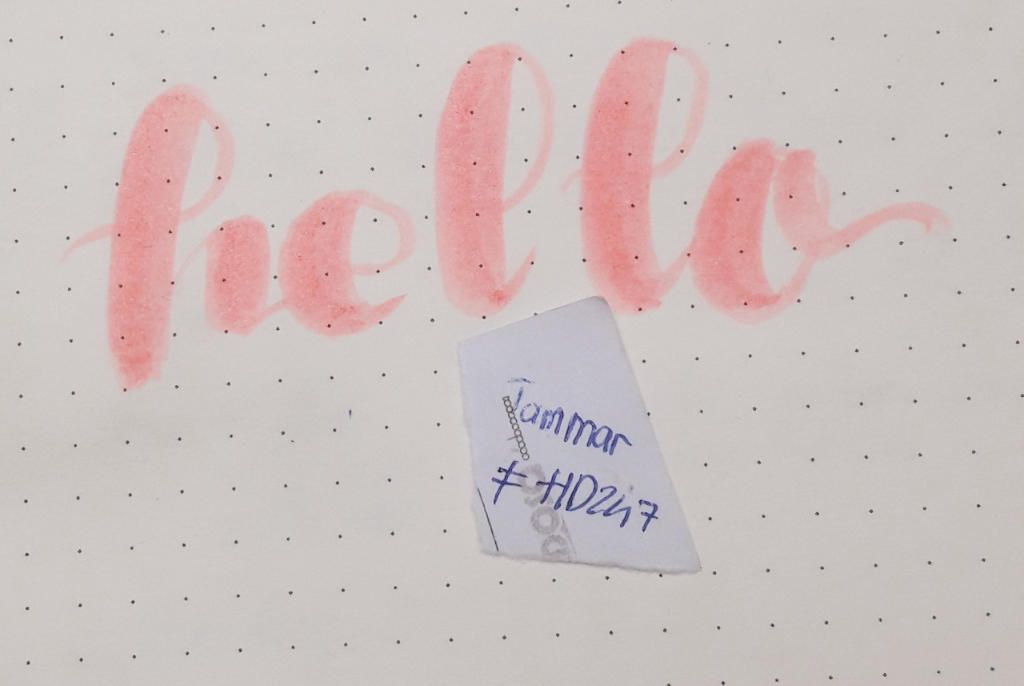 hello
Tammar
# HD247